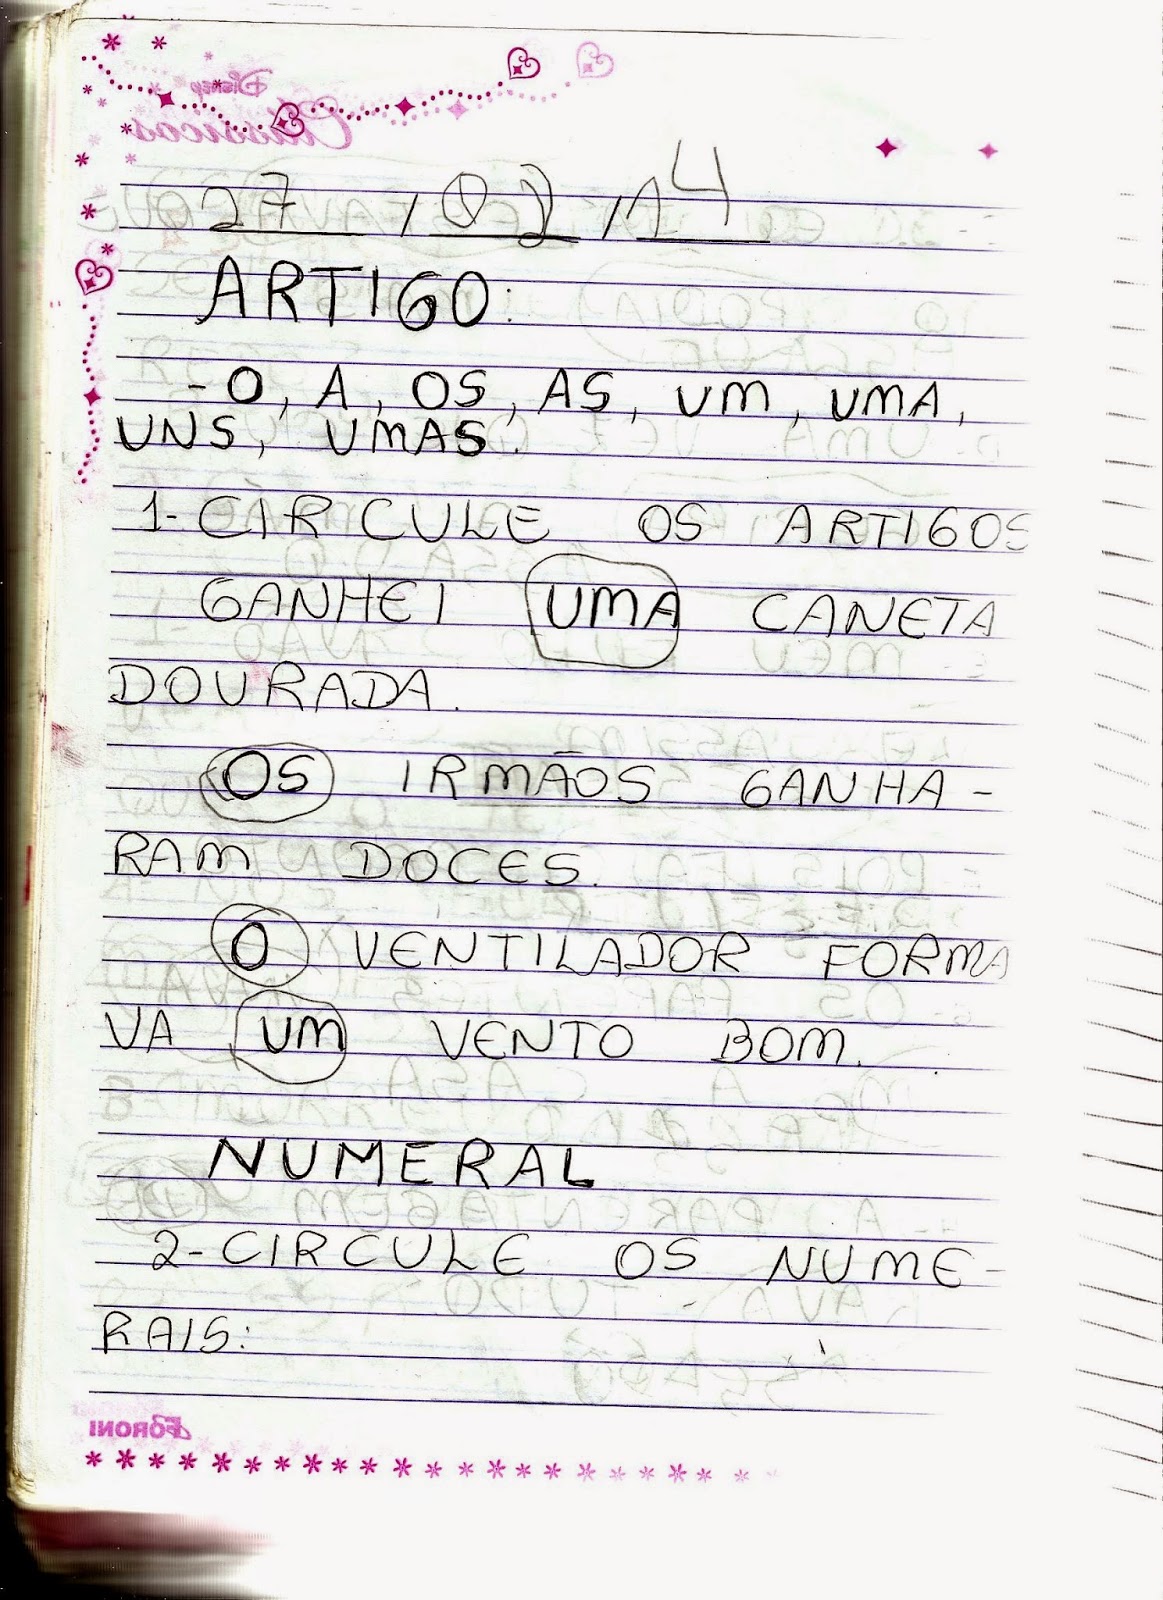 Disney
Clássicos
27 / 02 / 14
ARTIGO:
- O, A, OS, AS, UM, UMA,
UNS, UMAS.
1- CIRCULE OS ARTIGOS
GANHEI UMA CANETA
DOURADA.
OS IRMÃOS GANHA-
RAM DOCES.
O VENTILADOR FORMA
VA UM VENTO BOM.
NUMERAL
2- CIRCULE OS NUME-
RAIS:
FORONI